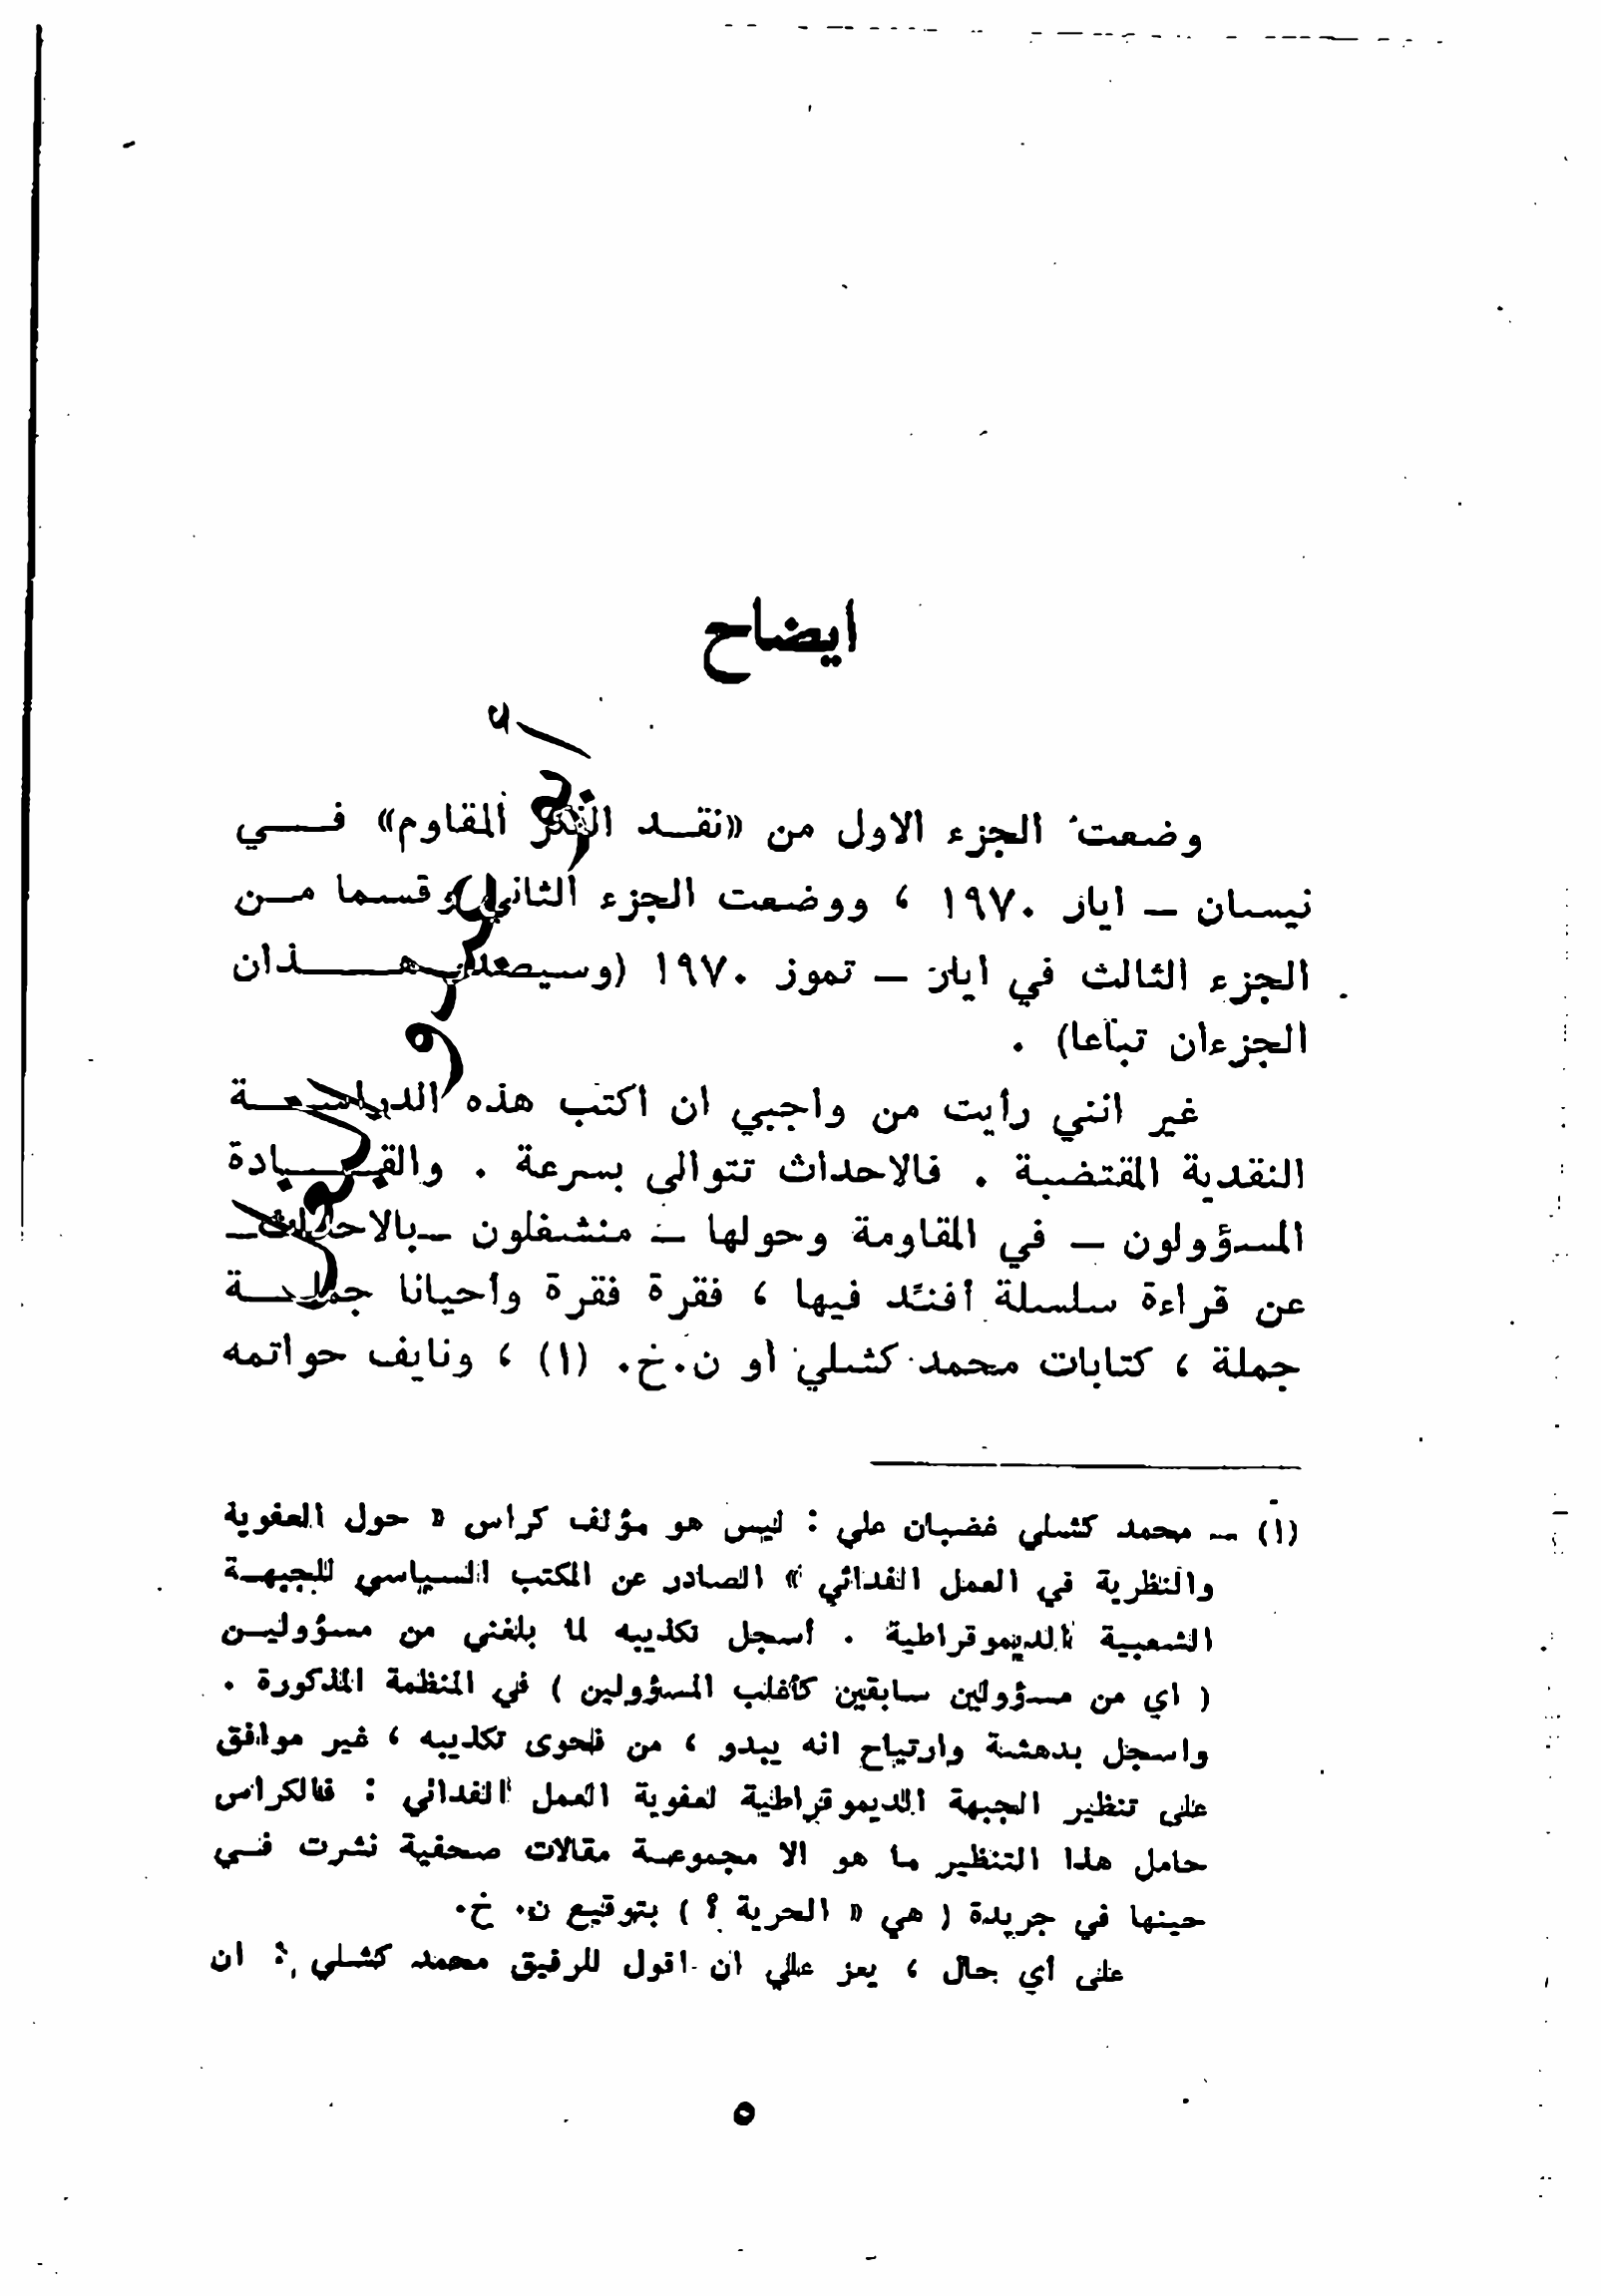 ايضاح
وضعت الجزء الاول من «نقد الفكر المقاوم» في
نيسان ـ ايار ١٩٧٠ ، ووضعت الجزء الثاني وقسما من
الجزء الثالث في ايار ـ تموز ١٩٧٠ (وسيصدر هذان
الجزءان تباعا) .
غير انني رأيت من واجبي ان اكتب هذه الدراسة
النقدية المقتضبة . فالاحداث تتوالى بسرعة . والقيادة
المسؤولون ـ في المقاومة وحولها ـ منشغلون ـبالاحداثـ
عن قراءة سلسلة أفنّد فيها ، فقرة فقرة وأحيانا جملة
جملة ، كتابات محمد كشلي أو ن.خ. (١) ، ونايف حواتمه
(١) ـ محمد كشلي غضبان علي : ليس هو مؤلف كراس « حول العفوية
والنظرية في العمل الفدائي » الصادر عن المكتب السياسي للجبهة
الشعبية الديموقراطية . أسجل تكذيبه لما بلغني من مسؤولين
( اي من مسؤولين سابقين كأغلب المسؤولين ) في المنظمة المذكورة .
واسجل بدهشة وارتياح انه يبدو ، من فحوى تكذيبه ، غير موافق
على تنظير الجبهة الديموقراطية لعفوية العمل الفدائي : فالكراس
حامل هذا التنظير ما هو الا مجموعة مقالات صحفية نشرت في
حينها في جريدة ( هي « الحرية ؟ ) بتوقيع ن. خ.
على أي حال ، يعز علي ان اقول للرفيق محمد كشلي : ان
٥